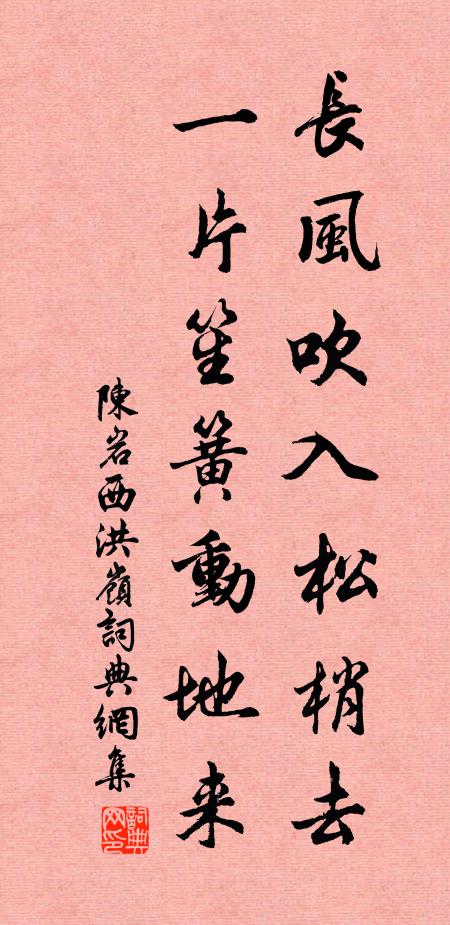 長風吹入松梢去
一片笙簧動地来
陳岩西洪嶺詞典網集
詞典网印